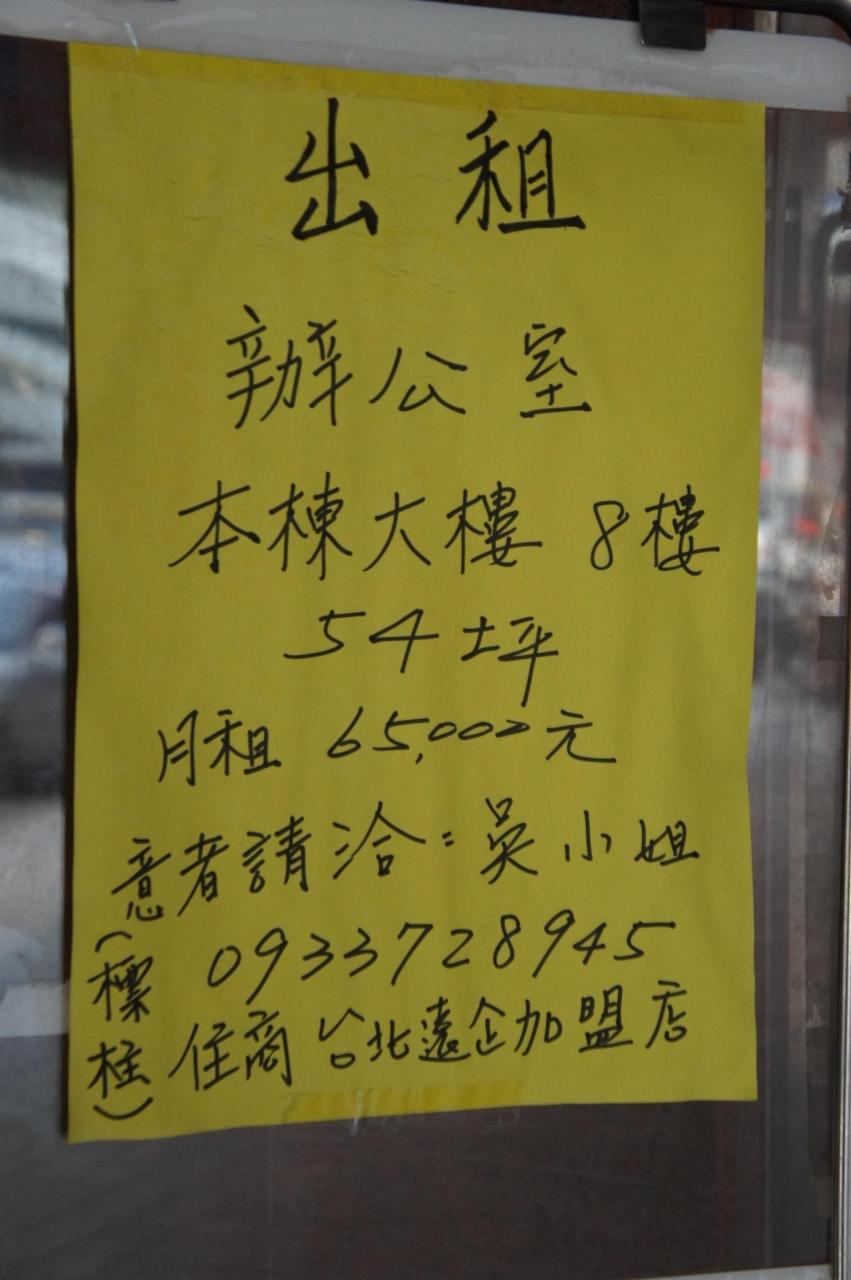 出租
辦公室
本棟大樓 8樓
54坪
月租 65,000元
意者請洽:吳小姐
0933728945
(標柱)住商台北遠企加盟店